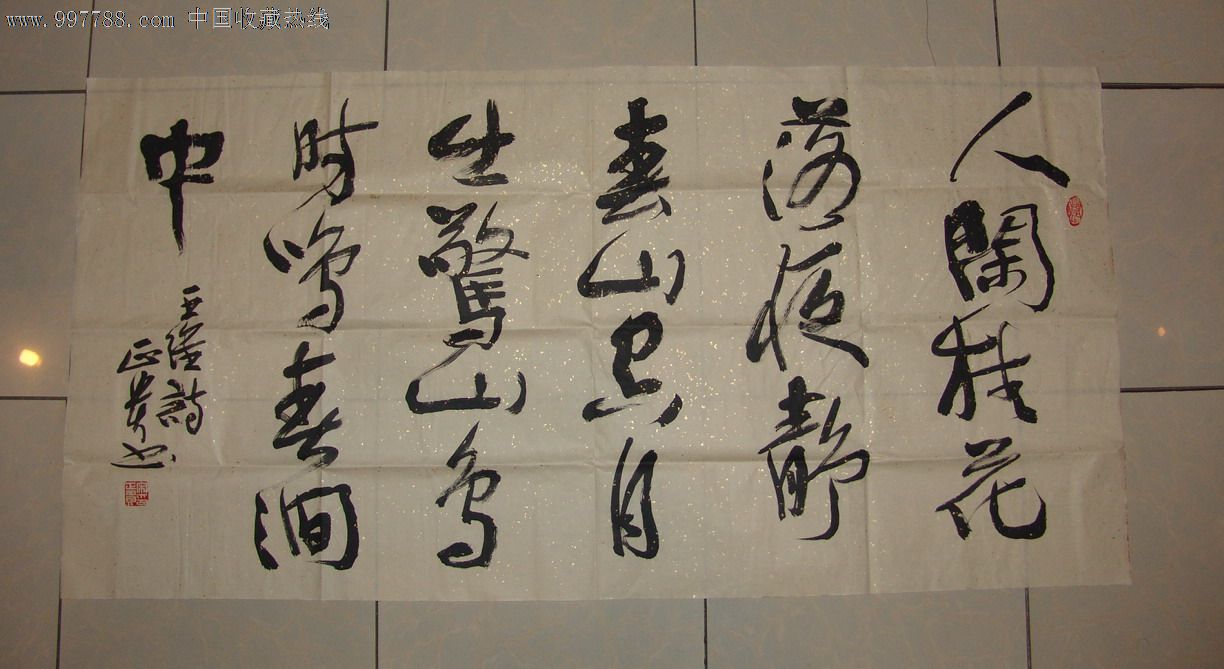 www.997788.com 中国收藏热线
人閑桂花
落夜靜
春山空月
出驚山鳥
時鳴春澗
中
王維詩
正